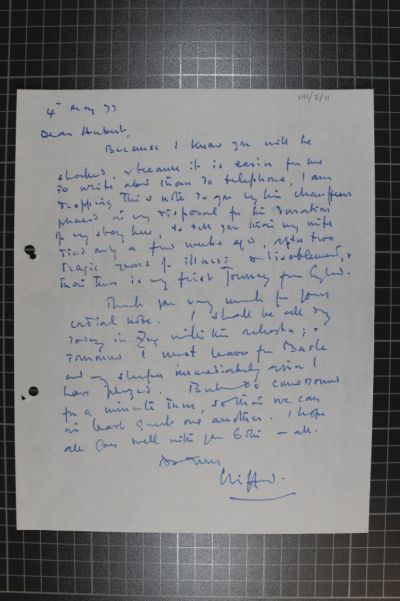 VIII/7/11
4th May 77
Dear Hubert,
Because I know you will be
shocked, & because it is easier for me
to write about than to telephone, I am
dropping this note to you by the chauffeur
placed at my disposal for the duration
of my stay here, to tell you that my wife
died only a few weeks ago, after two
tragic years of illness & disablement, &
that this is my first journey from
Thank you very much for your
cordial note. I shall be all day
today in Zug with the orchestra; &
tomorrow I must leave for Basle
and my sleeper immediately after I
have played. But do come round
for a minute then, so that we can
at least greet one another. I hope
all goes well with you both – all.
Clifford.